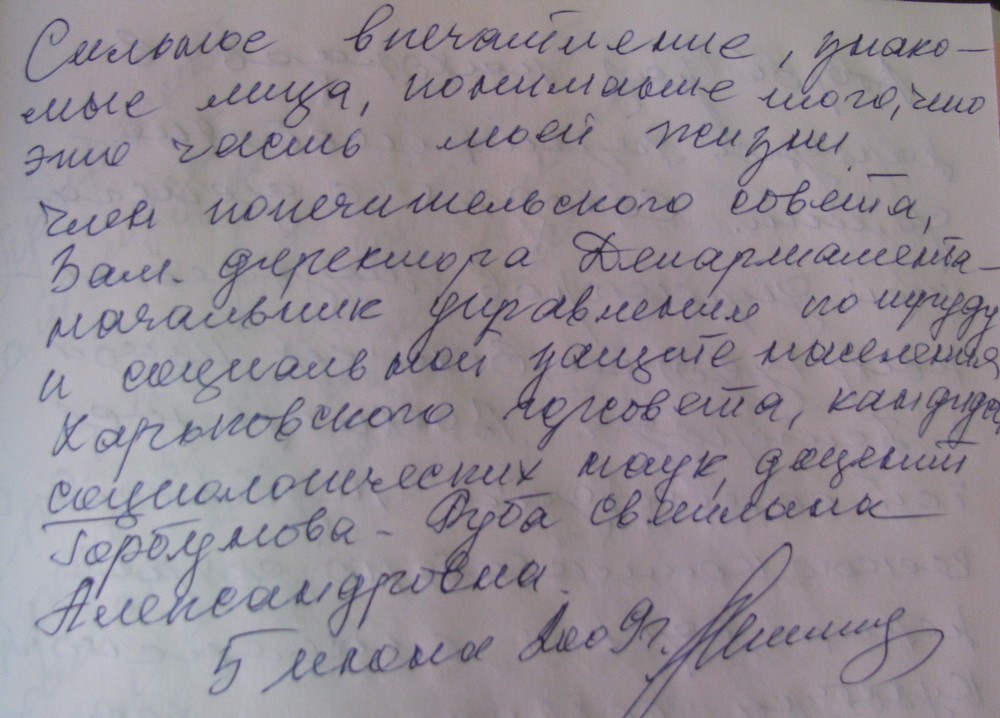 Сильное впечатление, знако-
мые лица, понимание того, что
это часть моей жизни
Член попечительского совета,
Зам. директора Департамента-
начальник управления по труду
и социальной защите населения
Харьковского горсовета, кандидат
социологических наук, доцент
Горбунова-Руба Светлана
Александровна.
5 июня 2009г.